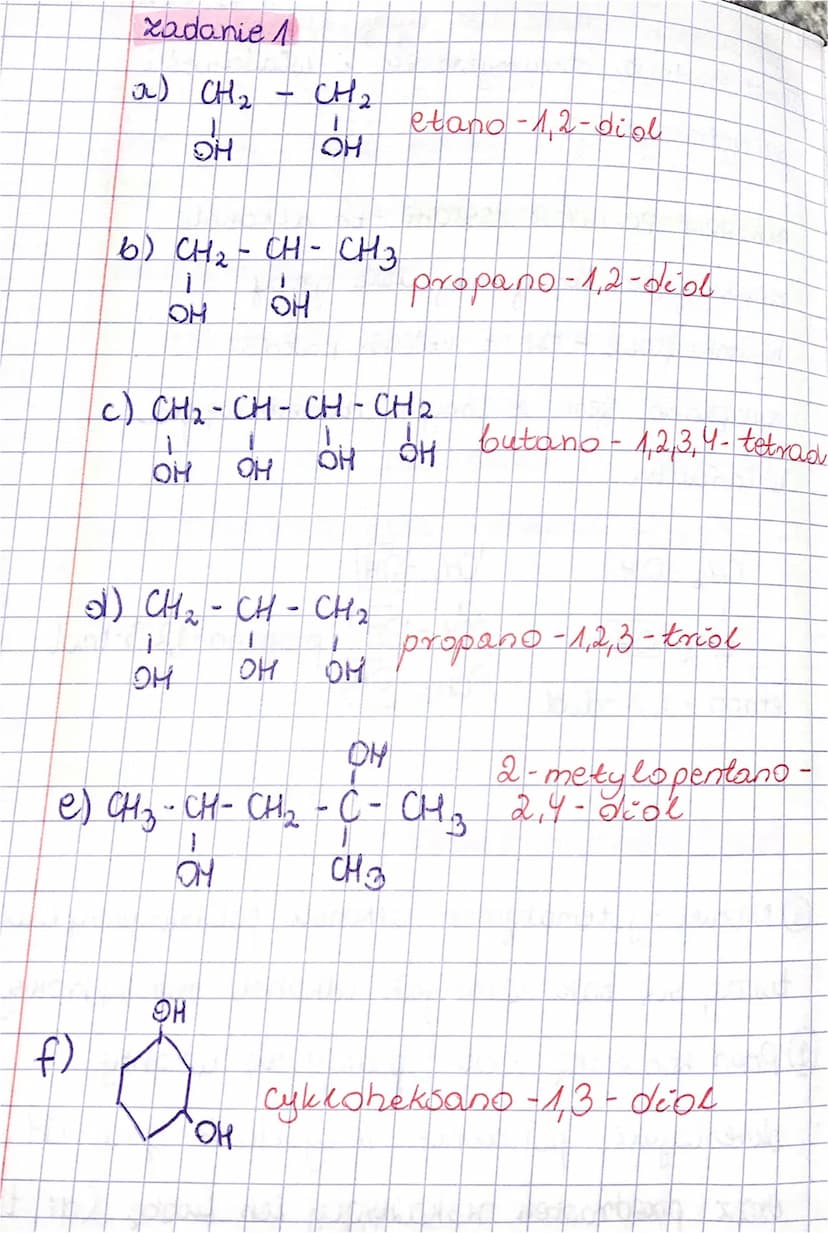 zadanie 1
a) CH₂ - CH₂
OH OH
etano-1,2-diol
b) CH₂ - CH - CH₃
OH OH
propano-1,2-diol
c) CH₂ - CH - CH - CH₂
OH OH OH OH
butano-1,2,3,4-
d) CH₂ - CH - CH₂
OH OH OH
propano-1,2,3-triol
OH
e) CH₃ - CH - CH₂ - C - CH₃
OH CH₃
2-metylopentano-
2,4-diol
OH
f)
OH
cykloheksano-1,3-diol